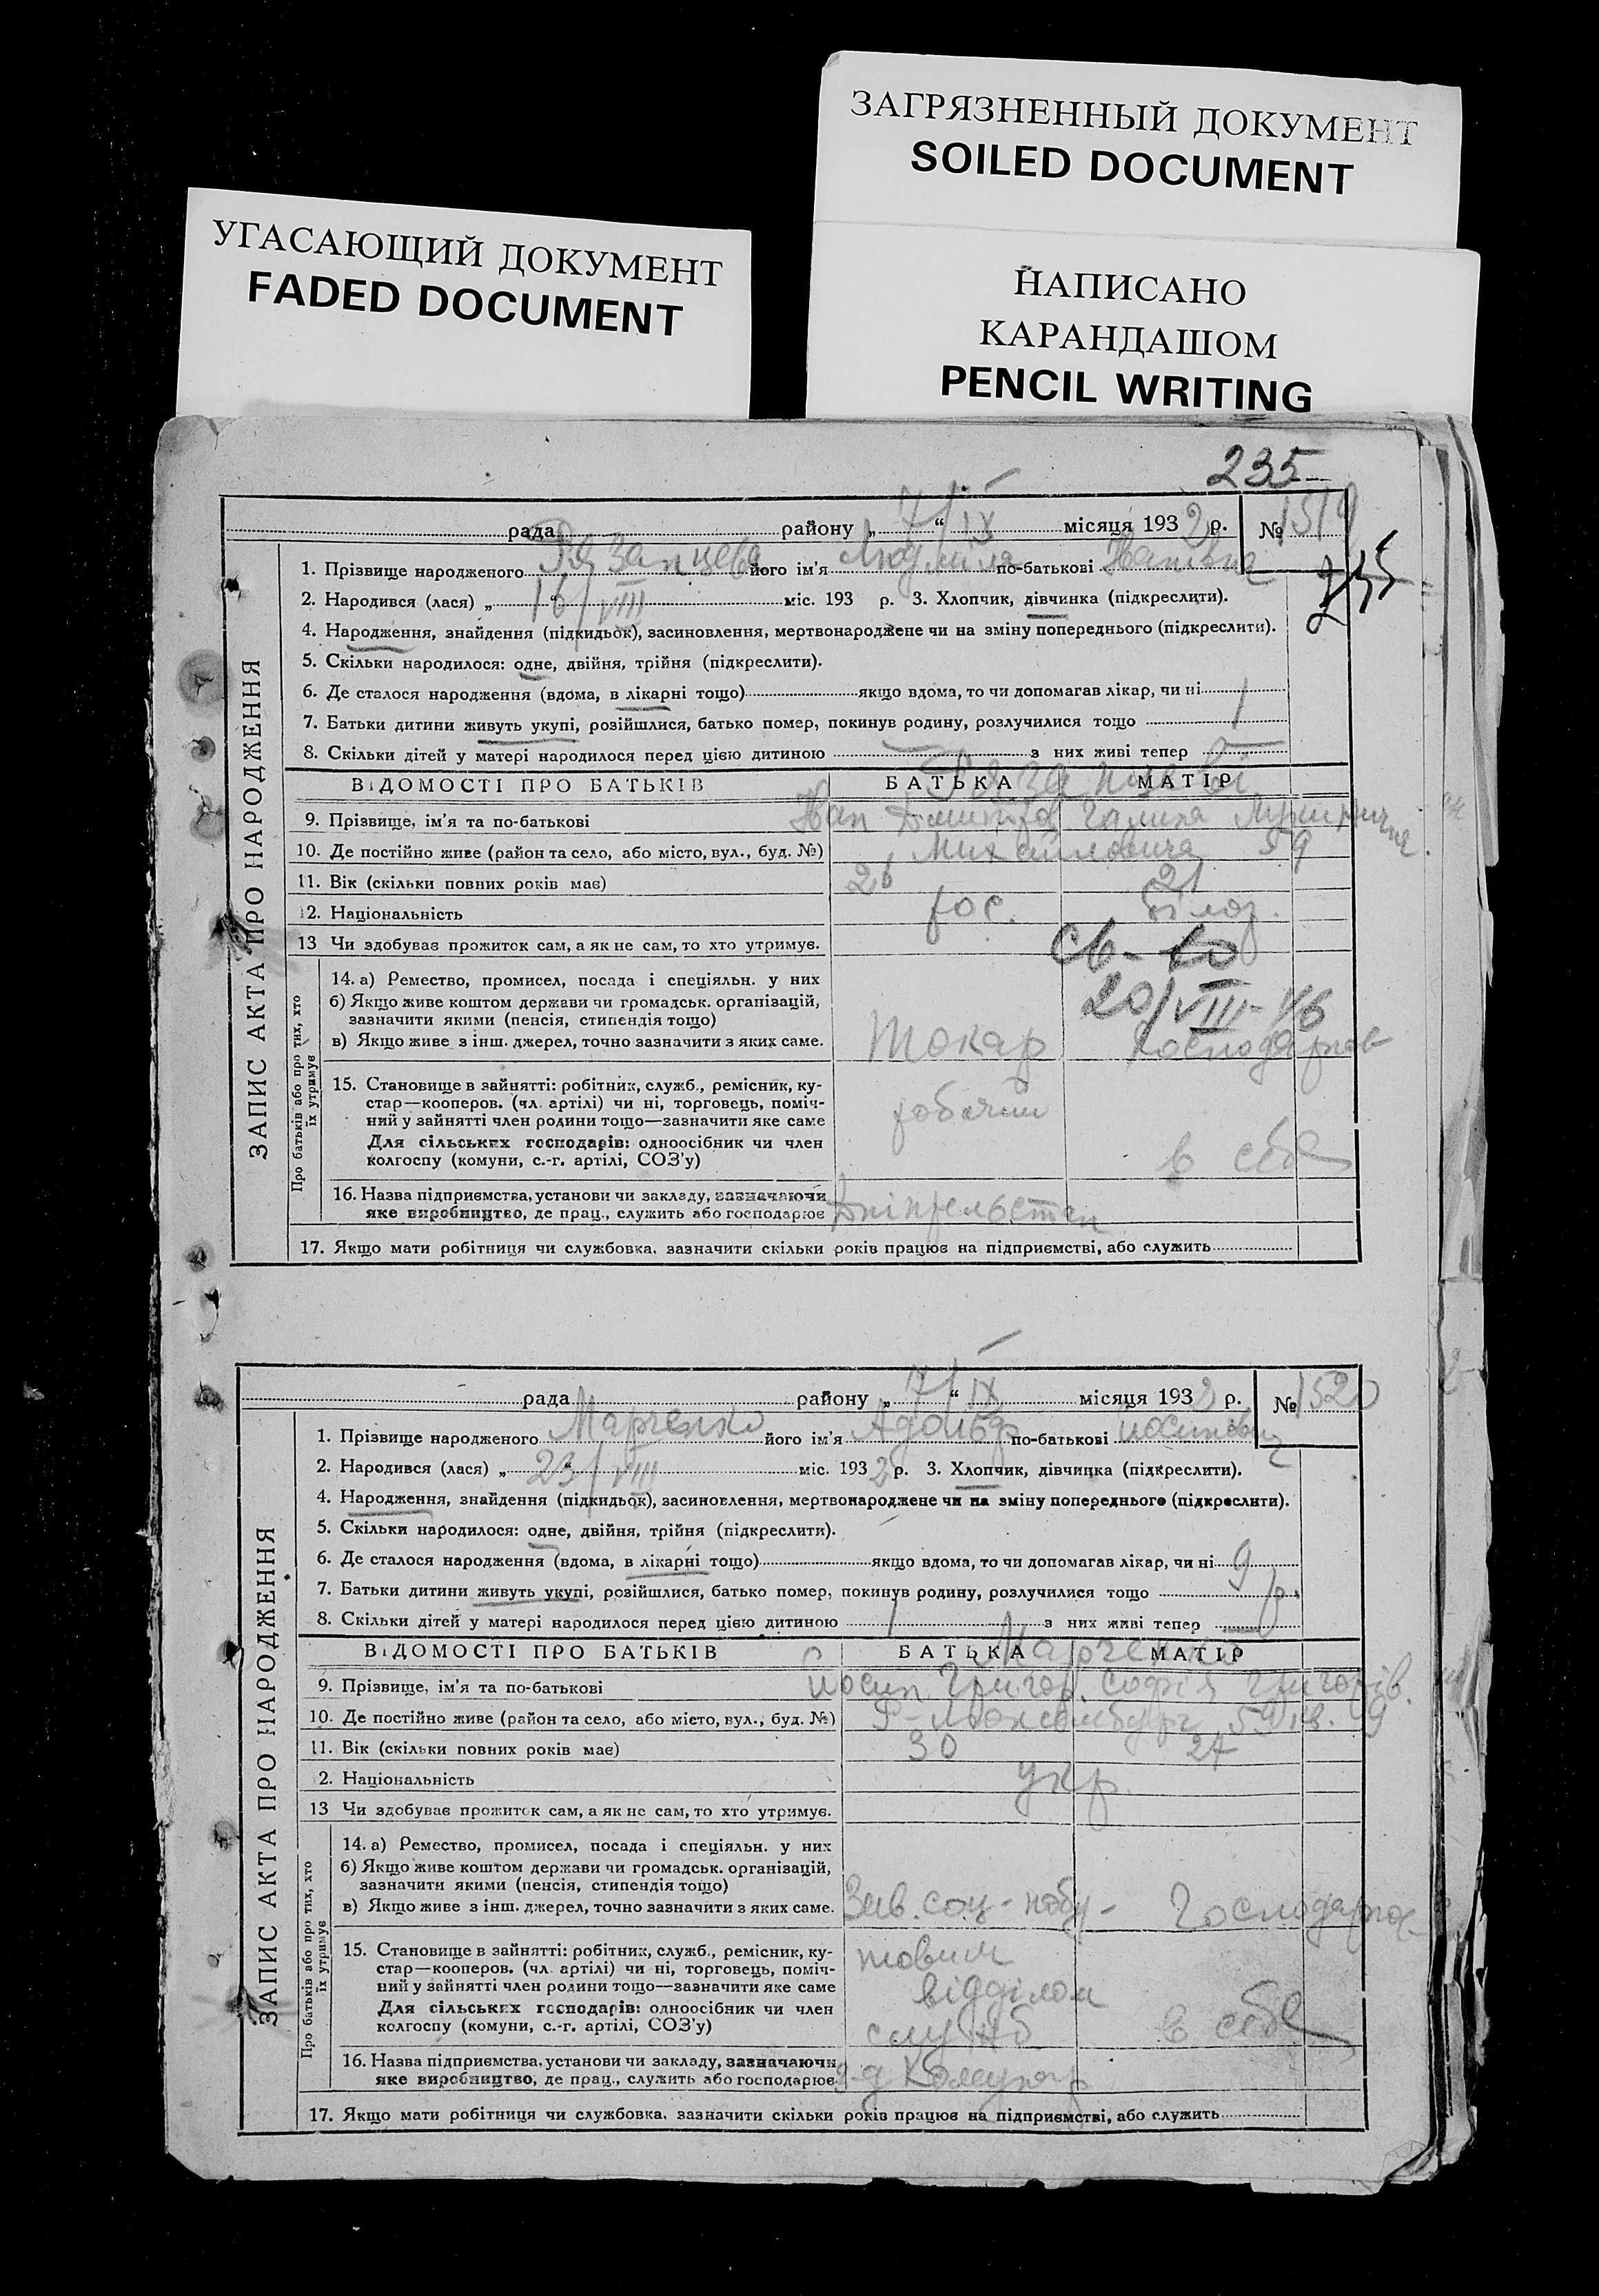 ЗАГРЯЗНЕННЫЙ ДОКУМЕНТ
SOILED DOCUMENT
УГАСАЮЩИЙ ДОКУМЕНТ
FADED DOCUMENT
НАПИСАНО
КАРАНДАШОМ
PENCIL WRITING
235
рада району „7/“ IX місяця 1932 р. № 1519
235
ЗАПИС АКТА ПРО НАРОДЖЕННЯ
1. Прізвище народженого Рязанцева його ім'я Людміла по-батькові Іванівна
2. Народився (лася) „16/“ VIII міс. 193 р. 3. Хлопчик, дівчинка (підкреслити).
4. Народження, знайдення (підкидьок), засиновлення, мертвонароджене чи на зміну попереднього (підкреслити).
5. Скільки народилося: одне, двійня, трійня (підкреслити).
6. Де сталося народження (вдома, в лікарні тощо) якщо вдома, то чи допомагав лікар, чи ні
7. Батьки дитини живуть укупі, розійшлися, батько помер, покинув родину, розлучилися тощо
8. Скільки дітей у матері народилося перед цією дитиною — з них живі тепер —
Рязанцеви
ВІДОМОСТІ ПРО БАТЬКІВ БАТЬКА МАТІР
9. Прізвище, ім'я та по-батькові Іван Галина
10. Де постійно живе (район та село, або місто, вул., буд. №) 59
11. Вік (скільки повних років має) 26 21
12. Національність рос. білор.
13 Чи здобував прожиток сам, а як не сам, то хто утримує.
св-во
20/VIII-46
Про батьків або про тих, хто їх утримує
14. а) Ремество, промисел, посада і спеціяльн. у них
б) Якщо живе коштом держави чи громадськ. організацій,
зазначити якими (пенсія, стипендія тощо)
в) Якщо живе з інш. джерел, точно зазначити з яких саме. Токар Господарює
15. Становище в зайнятті: робітник, служб., ремісник, ку-
стар—кооперов. (чл. артілі) чи ні, торговець, поміч-
ний у зайнятті член родини тощо—зазначити яке саме робочий
Для сільських господарів: одноосібник чи член
колгоспу (комуни, с.-г. артілі, СОЗ'у) в себе
16. Назва підприємства, установи чи закладу, зазначаючи
яке виробництво, де прац., служить або господарює Дніпрельстан
17. Якщо мати робітниця чи службовка, зазначити скільки років працює на підприємстві, або служить
рада району „7/“ IX місяця 1932 р. № 1520
ЗАПИС АКТА ПРО НАРОДЖЕННЯ
1. Прізвище народженого Марченко його ім'я Адольф по-батькові Йосипович
2. Народився (лася) „23/“ VIII міс. 1932 р. 3. Хлопчик, дівчинка (підкреслити).
4. Народження, знайдення (підкидьок), засиновлення, мертвонароджене чи на зміну попереднього (підкреслити).
5. Скільки народилося: одне, двійня, трійня (підкреслити).
6. Де сталося народження (вдома, в лікарні тощо) якщо вдома, то чи допомагав лікар, чи ні 9
7. Батьки дитини живуть укупі, розійшлися, батько помер, покинув родину, розлучилися тощо р.
8. Скільки дітей у матері народилося перед цією дитиною 1 з них живі тепер
Марченко
ВІДОМОСТІ ПРО БАТЬКІВ БАТЬКА МАТІР
9. Прізвище, ім'я та по-батькові Йосип Григор. Софія Григорів.
10. Де постійно живе (район та село, або місто, вул., буд. №) Р-Люксембург 59 кв. 9
11. Вік (скільки повних років має) 30 27
2. Національність укр.
13 Чи здобував прожиток сам, а як не сам, то хто утримує.
Про батьків або про тих, хто їх утримує
14. а) Ремество, промисел, посада і спеціяльн. у них
б) Якщо живе коштом держави чи громадськ. організацій,
зазначити якими (пенсія, стипендія тощо)
в) Якщо живе з інш. джерел, точно зазначити з яких саме. Зав. соц-побу- Господарює
15. Становище в зайнятті: робітник, служб., ремісник, ку- товим
стар—кооперов. (чл. артілі) чи ні, торговець, поміч-
ний у зайнятті член родини тощо—зазначити яке саме відділом
Для сільських господарів: одноосібник чи член
колгоспу (комуни, с.-г. артілі, СОЗ'у) служб в себе
16. Назва підприємства, установи чи закладу, зазначаючи
яке виробництво, де прац., служить або господарює з-д Комунар
17. Якщо мати робітниця чи службовка, зазначити скільки років працює на підприємстві, або служить